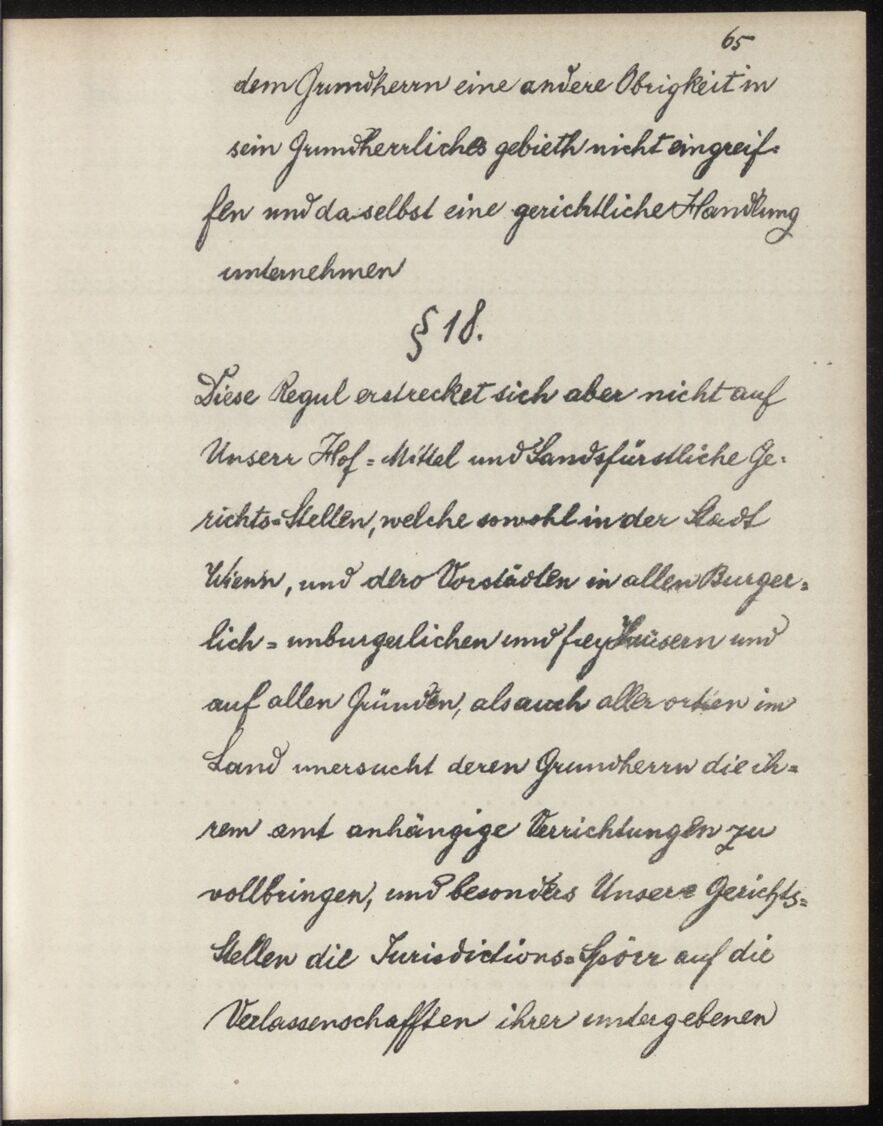 65
dem Grundherrn eine andere Obrigkeit in
sein Grundherrliches gebieth nicht eingreif=
fen und daselbst eine gerichtliche Handlung
unternehmen
§ 18.
Diese Regul erstrecket sich aber nicht auf
Unserr Hof= Mittel und Landsfürstliche Ge=
richts=Stellen, welche sowohl in der Stadt
Wienn, und dero Vorstädten in allen Burger=
lich= unburgerlichen und frey Häusern und
auf allen Gründen, als auch aller orthen im
Land unersucht deren Grundherrn die ih=
rem amt anhängige Verrichtungen zu
vollbringen, und besonders Unsere Gerichts=
Stellen die Jurisdictions=Spörr auf die
Verlassenschafften ihrer untergebenen